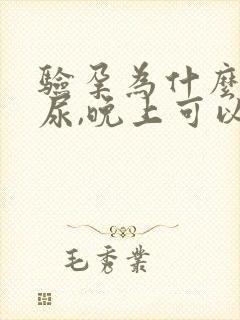 验孕为什麼
尿,晚上可以
毛秀業